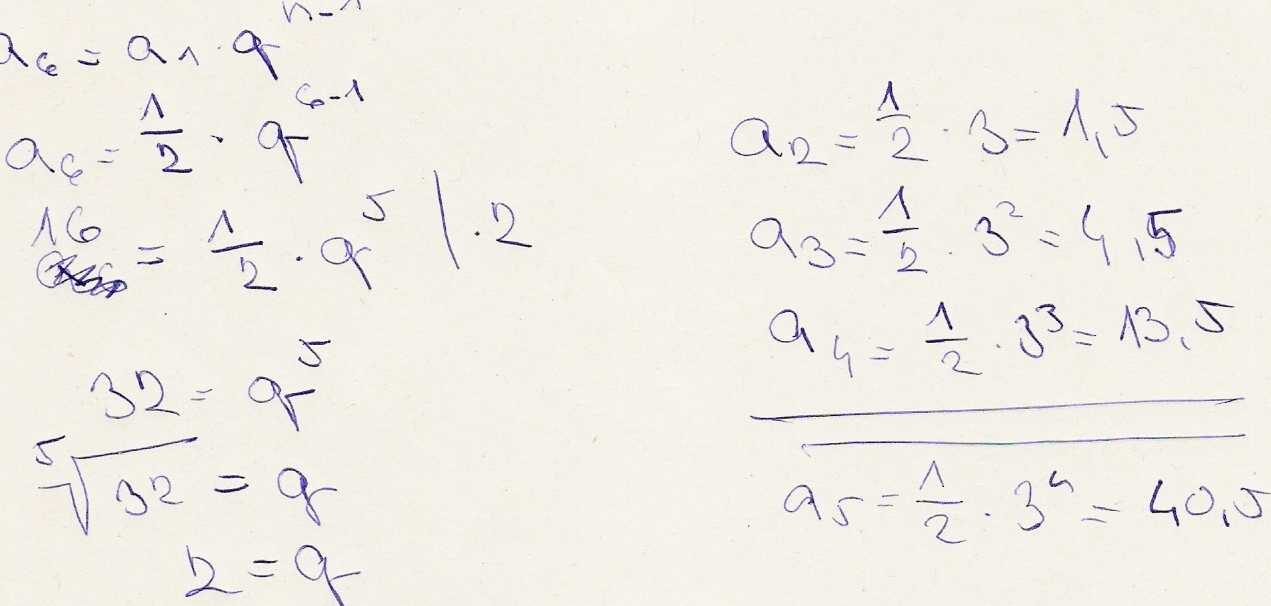 a₆ = a₁ · qⁿ⁻¹
a₆ = 1/2 · q⁶⁻¹
16 = 1/2 · q⁵ | · 2
32 = q⁵
⁵√32 = q
2 = q
a₂ = 1/2 · 3 = 1,5
a₃ = 1/2 · 3² = 4,5
a₄ = 1/2 · 3³ = 13,5
a₅ = 1/2 · 3⁴ = 40,5